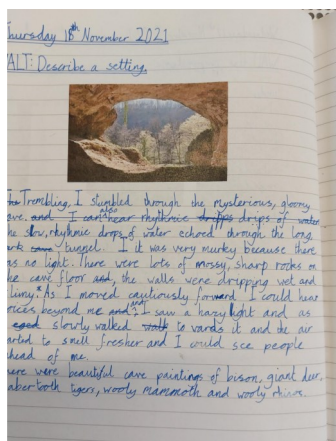 Thursday 18th November 2021
ALT: Describe a setting.
Trembling, I stumbled through the mysterious, gloomy
ave. and I can also hear rhythmic dripps drips of water
he slow, rhythmic drops of water echoed through the long
ark cave tunnel. I it was very murky because there
as no light. There were lots of mossy, sharp rocks on
he cave floor and, the walls were dripping wet and
limy. As I moved cautiously forward I could hear
oices beyond me and and I saw a hazy light and as
slowly walked walk to vards it and the air
arted to smell fresher and I could see people
head of me.
here were beautiful cave paintings of bison, giant deer,
abertooth tigers, wooly mammoth and wooly rhinos.